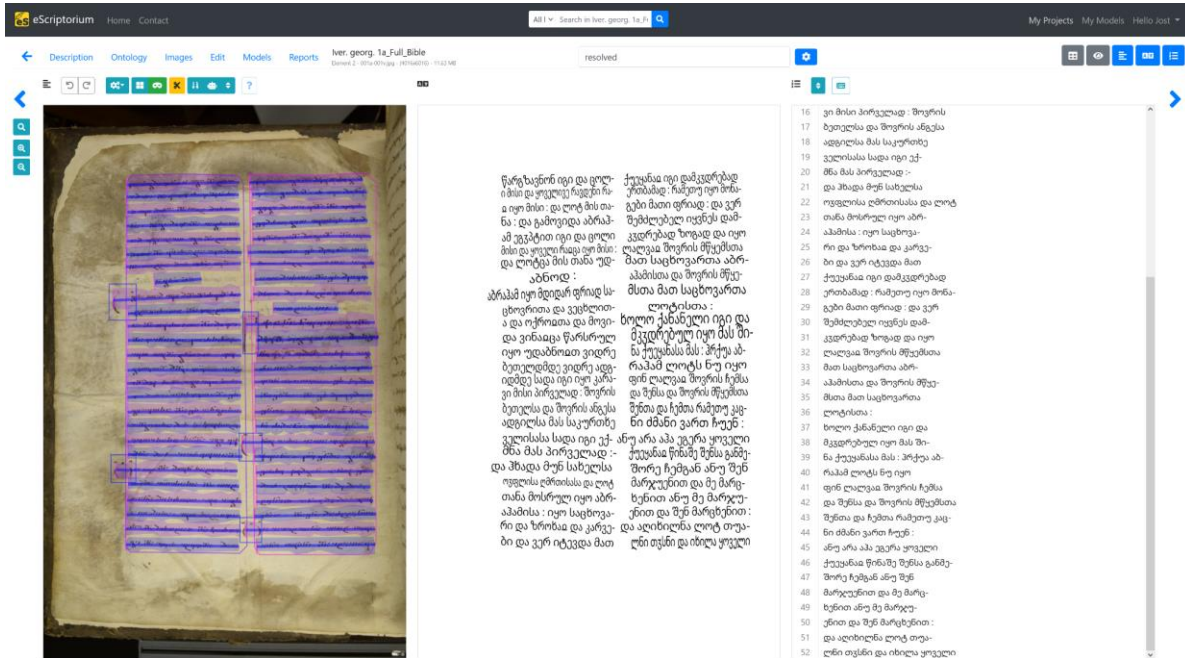 eScriptorium Home Contact
All Search in Iver. georg. 1a_Fu
My Projects My Models Hello Jost
Description Ontology Images Edit Models Reports
Iver. georg. 1a_Full_Bible
resolved
წარგზავნონ იგი და ცოლ-
ი მისი და ყოველივე რავდენი რა-
ჲ იყო მისი : და ლოტ მის თა-
ნა : და გამოვიდა აბრაჰ-
ამ ეგჳპტით იგი და ცოლი
მისი და ყოველი რაჲცა იყო მისი :
და ლოტცა მის თანა უდ-
აბნოდ :
აბრაჰამ იყო მდიდარ ფრიად სა-
ცხოვრითა და ვეცხლით-
ა და ოქროჲთა და მოვი-
და ვინაჲცა წარსრულ
იყო უდაბნოჲთ ვიდრე
ბეთელდმდე ვიდრე ადგ-
იდმდე სადა იგი იყო კარა-
ვი მისი პირველად : შოვრის
ბეთელსა და შოვრის ანგესა
ადგილსა მას საკურთხე
ველისასა სადა იგი ექ-
მნა მას პირველად :-
და ჰხადა მუნ სახელსა
ოჳფლისა ღმრთისასა და ლოტ
თანა მოსრულ იყო აბრ-
აჰამისა : იყო საცხოვა-
რი და ზროხაჲ და კარვე-
ბი და ვერ იტევდა მათ
ქუეყანაჲ იგი დამკჳდრებად
ერთბამად : რამეთუ იყო მონა-
გები მათი ფრიად : და ვერ
შემძლებელ იყვნეს დამ-
კჳდრებად ზოგად და იყო
ლალვაჲ შოვრის მწყემსთა
მათ საცხოვართა აბრ-
აჰამისთა და შოვრის მწყე-
მსთა მათ საცხოვართა
ლოტისთა :
ხოლო ქანანელი იგი და
მკჳდრებულ იყო მას ში-
ნა ქუეყანასა მას : ჰრქუა აბ-
რაჰამ ლოტს ნუ იყო
ფინ ლალვაჲ შოვრის ჩემსა
და შენსა და შოვრის მწყემსთა
შენთა და ჩემთა რამეთუ კაც-
ნი ძმანი ვართ ჩუენ :
ანუ არა აჰა ეგერა ყოველი
ქუეყანაჲ წინაშე შენსა განშე-
შორე ჩემგან ანუ შენ
მარჯუენით და მე მარც-
ხენით ანუ მე მარჯუ-
ენით და შენ მარცხენით :
და აღიხილნა ლოტ თუა-
ლნი თჳსნი და იხილა ყოველი
16 ვი მისი პირველად : შოვრის
17 ბეთელსა და შოვრის ანგესა
18 ადგილსა მას საკურთხე
19 ველისასა სადა იგი ექ-
20 მნა მას პირველად :-
21 და ჰხადა მუნ სახელსა
22 ოჳფლისა ღმრთისასა და ლოტ
23 თანა მოსრულ იყო აბრ-
24 აჰამისა : იყო საცხოვა-
25 რი და ზროხაჲ და კარვე-
26 ბი და ვერ იტევდა მათ
27 ქუეყანაჲ იგი დამკჳდრებად
28 ერთბამად : რამეთუ იყო მონა-
29 გები მათი ფრიად : და ვერ
30 შემძლებელ იყვნეს დამ-
31 კჳდრებად ზოგად და იყო
32 ლალვაჲ შოვრის მწყემსთა
33 მათ საცხოვართა აბრ-
34 აჰამისთა და შოვრის მწყე-
35 მსთა მათ საცხოვართა
36 ლოტისთა :
37 ხოლო ქანანელი იგი და
38 მკჳდრებულ იყო მას ში-
39 ნა ქუეყანასა მას : ჰრქუა აბ-
40 რაჰამ ლოტს ნუ იყო
41 ფინ ლალვაჲ შოვრის ჩემსა
42 და შენსა და შოვრის მწყემსთა
43 შენთა და ჩემთა რამეთუ კაც-
44 ნი ძმანი ვართ ჩუენ :
45 ანუ არა აჰა ეგერა ყოველი
46 ქუეყანაჲ წინაშე შენსა განშე-
47 შორე ჩემგან ანუ შენ
48 მარჯუენით და მე მარც-
49 ხენით ანუ მე მარჯუ-
50 ენით და შენ მარცხენით :
51 და აღიხილნა ლოტ თუა-
52 ლნი თჳსნი და იხილა ყოველი